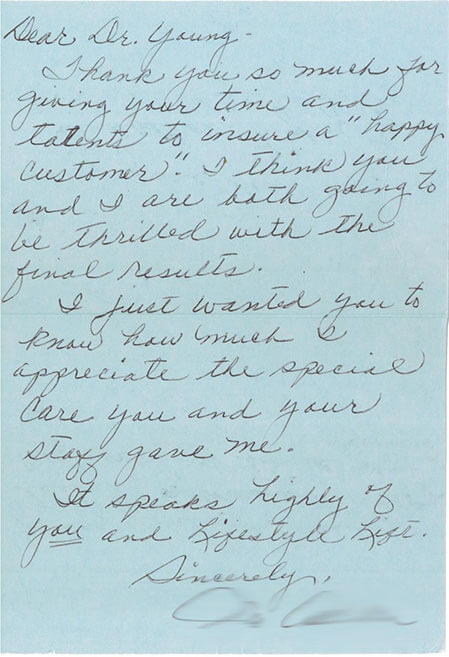 Dear Dr. Young -
I hank you so much for
giving your time and
talents to insure a "happy
customer". I think you
and I are both going to
be thrilled with the
final results.
I just wanted you to
know how much I
appreciate the special
care you and your
staff gave me.
It speaks highly of
you and Lifestyle Lift.
Sincerely,